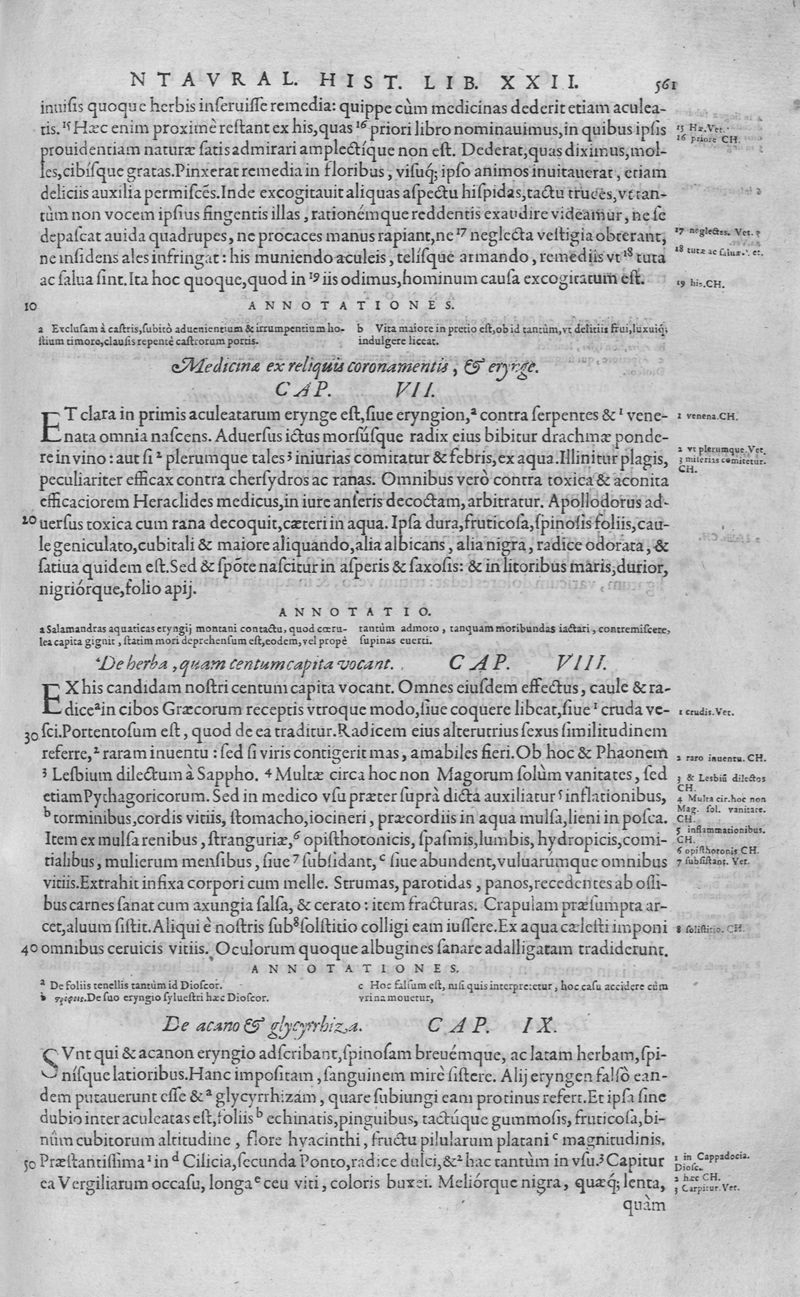 NTAVRAL. HIST. LIB. XXII. 561
inuisis quoque herbis inseruisse remedia: quippe cùm medicinas dederit etiam aculea-
tis. 15 Hæc enim proximè restant ex his, quas 16 priori libro nominauimus, in quibus ipsis
prouidentiam naturæ satis admirari amplectíque non est. Dederat, quas diximus, mol-
les, cibísque gratas. Pinxerat remedia in floribus, visuq́; ipso animos inuitauerat, etiam
deliciis auxilia permiscẽs. Inde excogitauit aliquas aspectu hispidas, tactu truces, vt tan-
tùm non vocem ipsius fingentis illas, rationémque reddentis exaudire videamur, ne se
depascat auida quadrupes, ne procaces manus rapiant, ne 17 neglecta vestigia obterant,
ne insidens ales infringat: his muniendo aculeis, telísque armando, remediis vt 18 tuta
ac salua sint. Ita hoc quoque, quod in 19 iis odimus, hominum causa excogitatum est.
15 Hæ. Vet.
16 priore CH.
17 neglectas. Vet.
18 tutæ ac saluæ. Vet.
19 his. CH.
10 ANNOTATIONES.
a Exclusam à castris, subitò aduenientium & irrumpentium ho-
stium timore, clausis repentè castrorum portis.
b Vita maiore in pretio est, ob id tantùm, vt delitiis frui, luxuiq́;
indulgere liceat.
Medicina ex reliquis coronamentis, & erynge.
CAP. VII.
ET clara in primis aculeatarum erynge est, siue eryngion, a contra serpentes & 1 vene-
nata omnia nascens. Aduersus ictus morsúsque radix eius bibitur drachmæ ponde-
re in vino: aut si 2 plerumque tales 3 iniurias comitatur & febris, ex aqua. Illinitur plagis,
peculiariter efficax contra chersydros ac ranas. Omnibus verò contra toxica & aconita
efficaciorem Heraclides medicus, in iure anseris decoctam, arbitratur. Apollodorus ad-
20 uersus toxica cum rana decoquit, cæteri in aqua. Ipsa dura, fruticosa, spinosis foliis, cau-
le geniculato, cubitali & maiore aliquando, alia albicans, alia nigra, radice odorata, &
satiua quidem est. Sed & spõte nascitur in asperis & saxosis: & in litoribus maris, durior,
nigriórque, folio apij.
1 venena. CH.
2 vt plerumque. Vet.
3 miserias comitetur.
CH.
ANNOTATIO.
a Salamandras aquaticas eryngij montani contactu, quod cœru-
lea capita gignit, statim mori deprehensum est, eodem, vel propè
tantùm admoto, tanquam moribundas iactari, contremiscere,
supinas euerti.
De herba, quam centumcapita vocant. CAP. VIII.
EX his candidam nostri centum capita vocant. Omnes eiusdem effectus, caule & ra-
dice a in cibos Græcorum receptis vtroque modo, siue coquere libeat, siue 1 cruda ve-
30 sci. Portentosum est, quod de ea traditur. Radicem eius alterutrius sexus similitudinem
referre, 2 raram inuentu: sed si viris contigerit mas, amabiles fieri. Ob hoc & Phaonem
3 Lesbium dilectum à Sappho. 4 Multæ circa hoc non Magorum solùm vanitates, sed
etiam Pythagoricorum. Sed in medico vsu præter suprà dicta auxiliatur 5 inflationibus,
b torminibus, cordis vitiis, stomacho, iocineri, præcordiis in aqua mulsa, lieni in posca.
Item ex mulsa renibus, stranguriæ, 6 opisthotonicis, spasmis, lumbis, hydropicis, comi-
tialibus, mulierum mensibus, siue 7 subsidant, c siue abundent, vuluarúmque omnibus
vitiis. Extrahit infixa corpori cum melle. Strumas, parotidas, panos, recedentes ab ossi-
bus carnes sanat cum axungia salsa, & cerato: item fracturas. Crapulam præsumpta ar-
cet, aluum sistit. Aliqui è nostris sub 8 solstitio colligi eam iussere. Ex aqua cælesti imponi
40 omnibus ceruicis vitiis. Oculorum quoque albugines sanare adalligatam tradiderunt.
1 crudis. Vet.
2 raro inuentu. CH.
3 & Lesbiũ dilectos
CH.
4 Multa cir. hoc non
Mag. sol. vanitate.
CH.
5 inflammationibus.
CH.
6 opisthotonis CH.
7 subsistant. Vet.
8 solistitio. CH.
ANNOTATIONES.
a De foliis tenellis tantùm id Dioscor.
b De suo eryngio syluestri hæc Dioscor.
c Hoc falsum est, nisi quis interpretetur, hoc casu accidere cùm
vrina mouetur,
De acano & glycyrrhiza. CAP. IX.
SVnt qui & acanon eryngio adscribant, spinosam breuémque, ac latam herbam, spi-
nísque latioribus. Hanc impositam, sanguinem mirè sistere. Alij eryngen falsò ean-
dem putauerunt esse & a glycyrrhizam, quare subiungi eam protinus refert. Et ipsa sine
dubio inter aculeatas est, foliis b echinatis, pinguibus, tactúque gummosis, fruticosa, bi-
nûm cubitorum altitudine, flore hyacinthi, fructu pilularum platani c magnitudinis.
50 Præstantissima 1 in d Cilicia, secunda Ponto, radice dulci, & 2 hac tantùm in vsu. 3 Capitur
ea Vergiliarum occasu, longa e ceu viti, coloris buxei. Meliórque nigra, quæq́; lenta,
quàm
1 in Cappadocia.
Diosc.
2 hæc CH.
3 Carpitur. Vet.